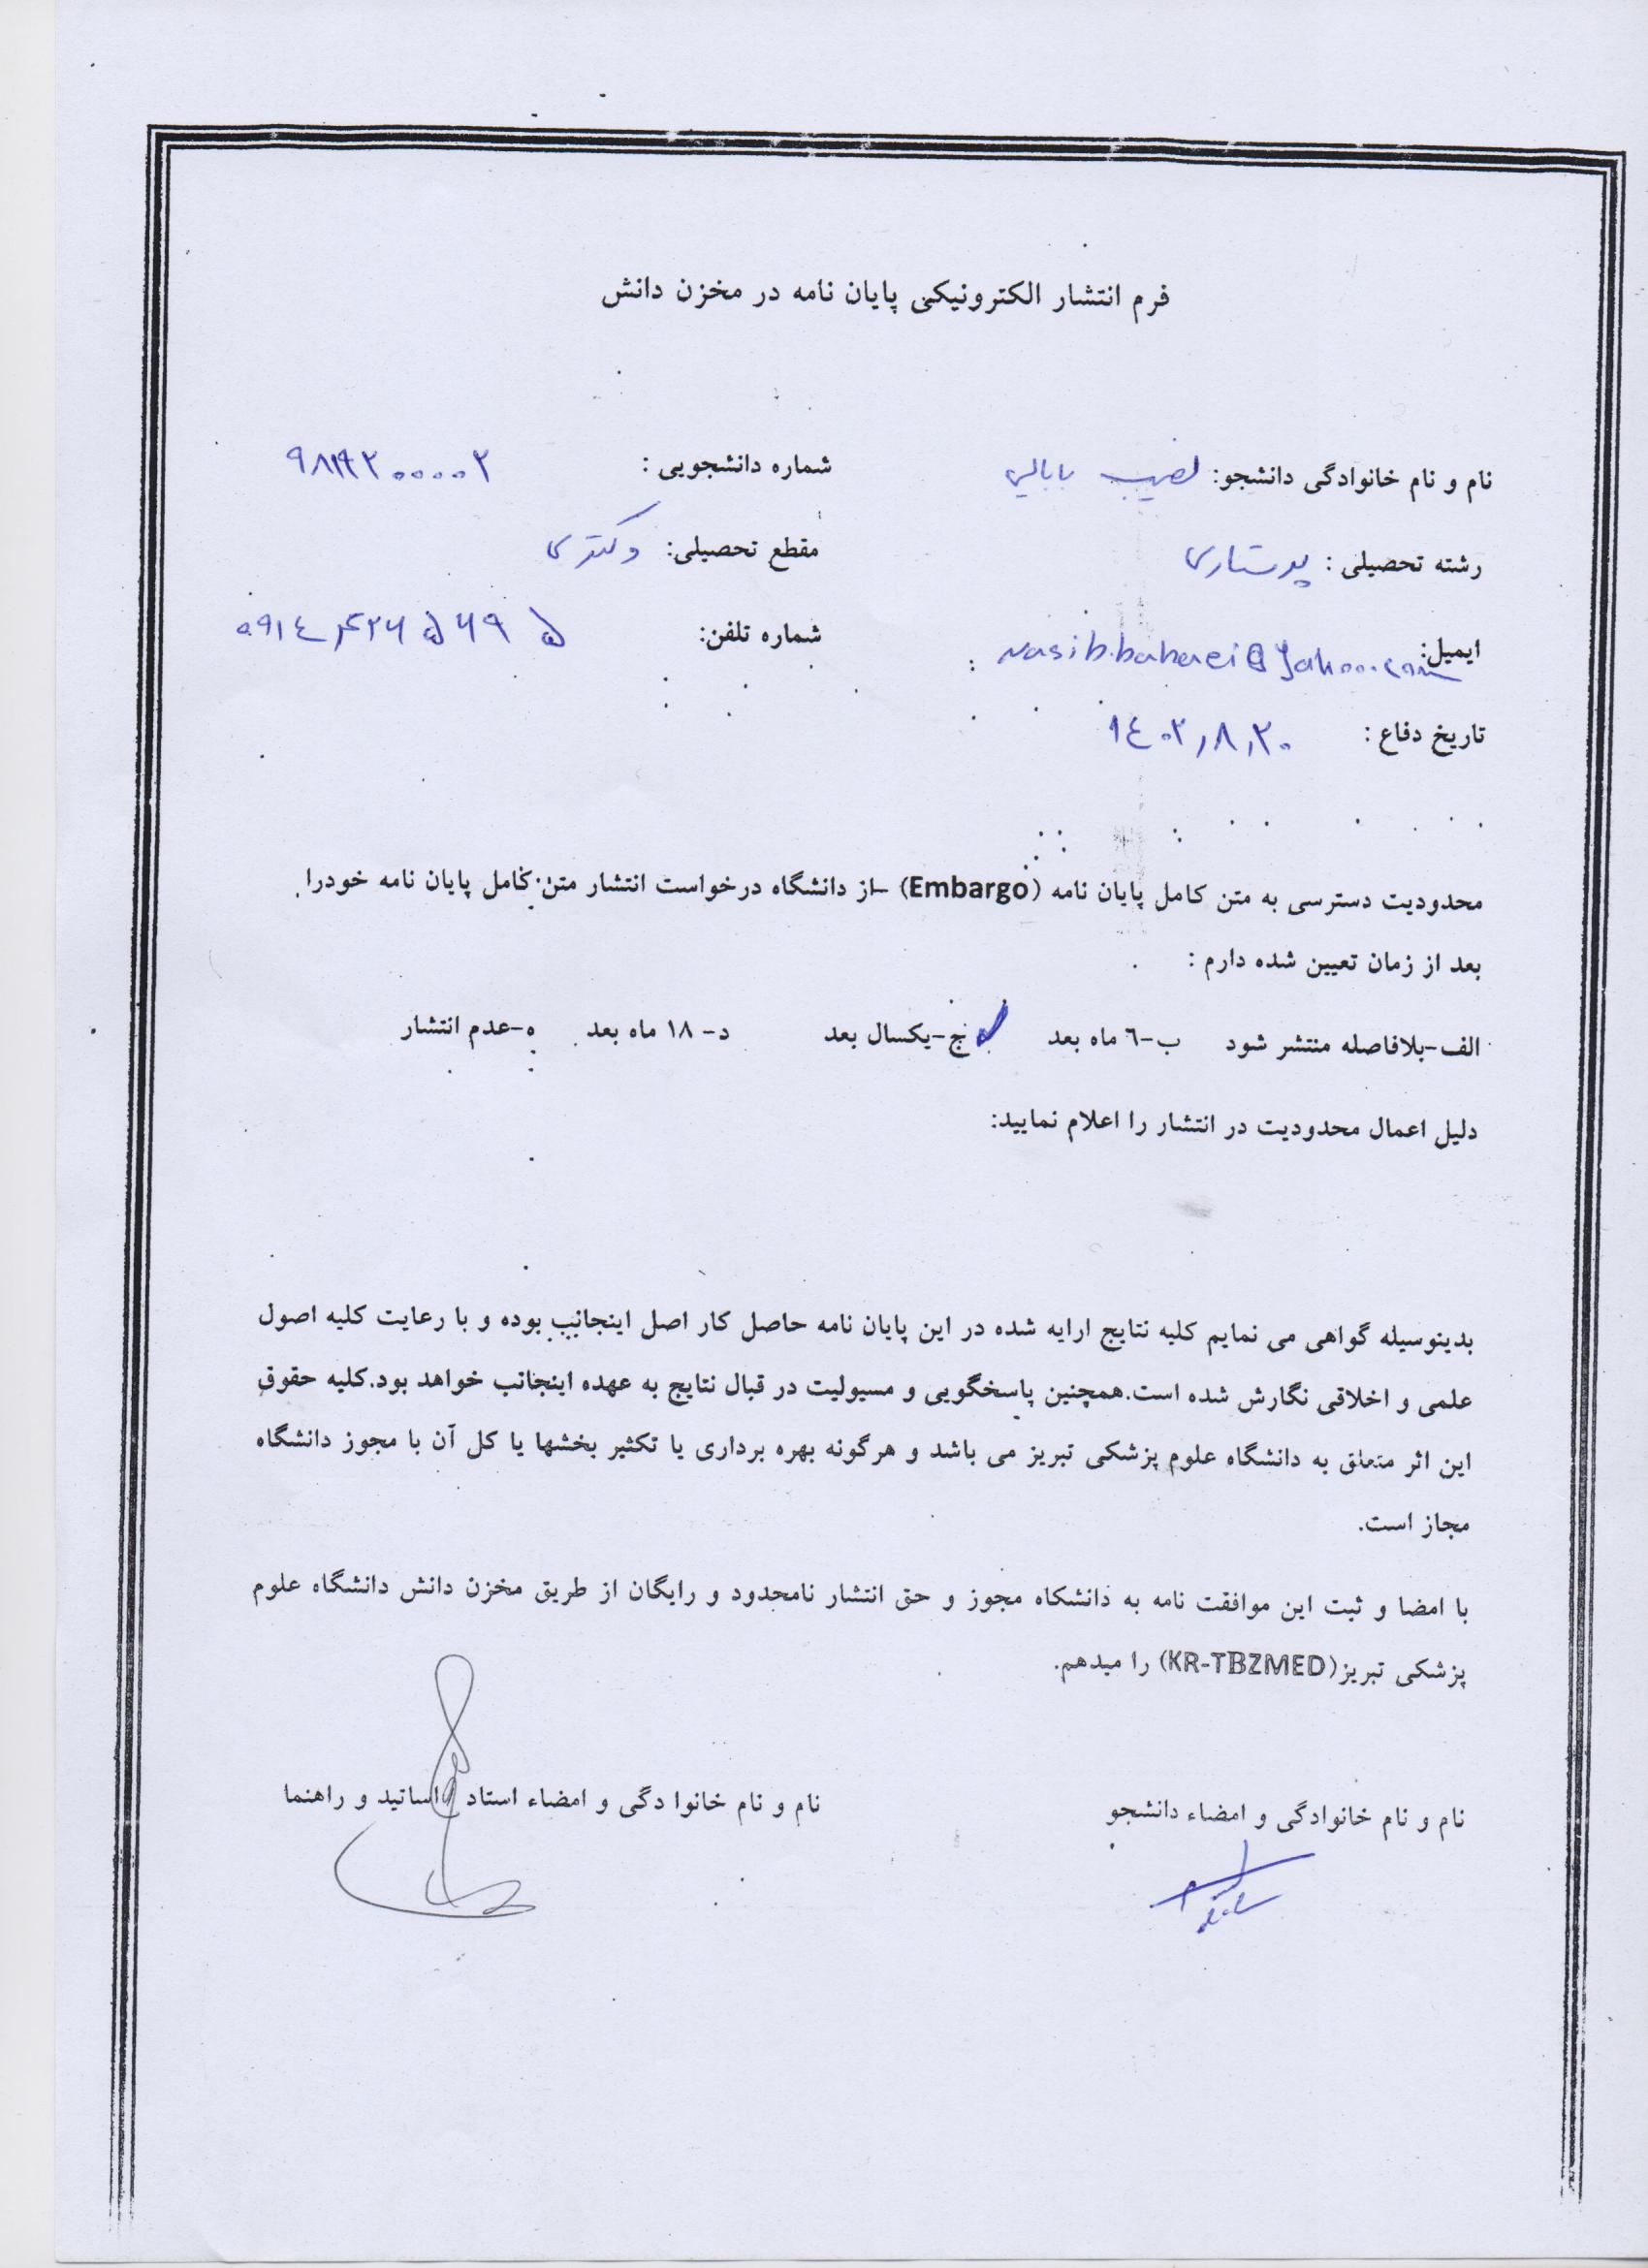 فرم انتشار الکترونیکی پایان نامه در مخزن دانش
نام و نام خانوادگی دانشجو: نصیب بابائی شماره دانشجویی :
رشته تحصیلی : پرستاری مقطع تحصیلی: دکتری
ایمیل: nasib.babaei@yahoo.com شماره تلفن:
تاریخ دفاع : ۱٤۰۲٫۸٫۲۰
محدودیت دسترسی به متن کامل پایان نامه (Embargo) –از دانشگاه درخواست انتشار متن کامل پایان نامه خودرا
بعد از زمان تعیین شده دارم :
الف-بلافاصله منتشر شود ب-٦ ماه بعد ج-یکسال بعد د- ۱۸ ماه بعد ه-عدم انتشار
دلیل اعمال محدودیت در انتشار را اعلام نمایید:
بدینوسیله گواهی می نمایم کلیه نتایج ارایه شده در این پایان نامه حاصل کار اصل اینجانب بوده و با رعایت کلیه اصول
علمی و اخلاقی نگارش شده است.همچنین پاسخگویی و مسیولیت در قبال نتایج به عهده اینجانب خواهد بود.کلیه حقوق
این اثر متعلق به دانشگاه علوم پزشکی تبریز می باشد و هرگونه بهره برداری یا تکثیر بخشها یا کل آن با مجوز دانشگاه
مجاز است.
با امضا و ثبت این موافقت نامه به دانشکاه مجوز و حق انتشار نامحدود و رایگان از طریق مخزن دانش دانشگاه علوم
پزشکی تبریز(KR-TBZMED) را میدهم.
نام و نام خانوادگی و امضاء دانشجو نام و نام خانوا دگی و امضاء استاد اساتید و راهنما